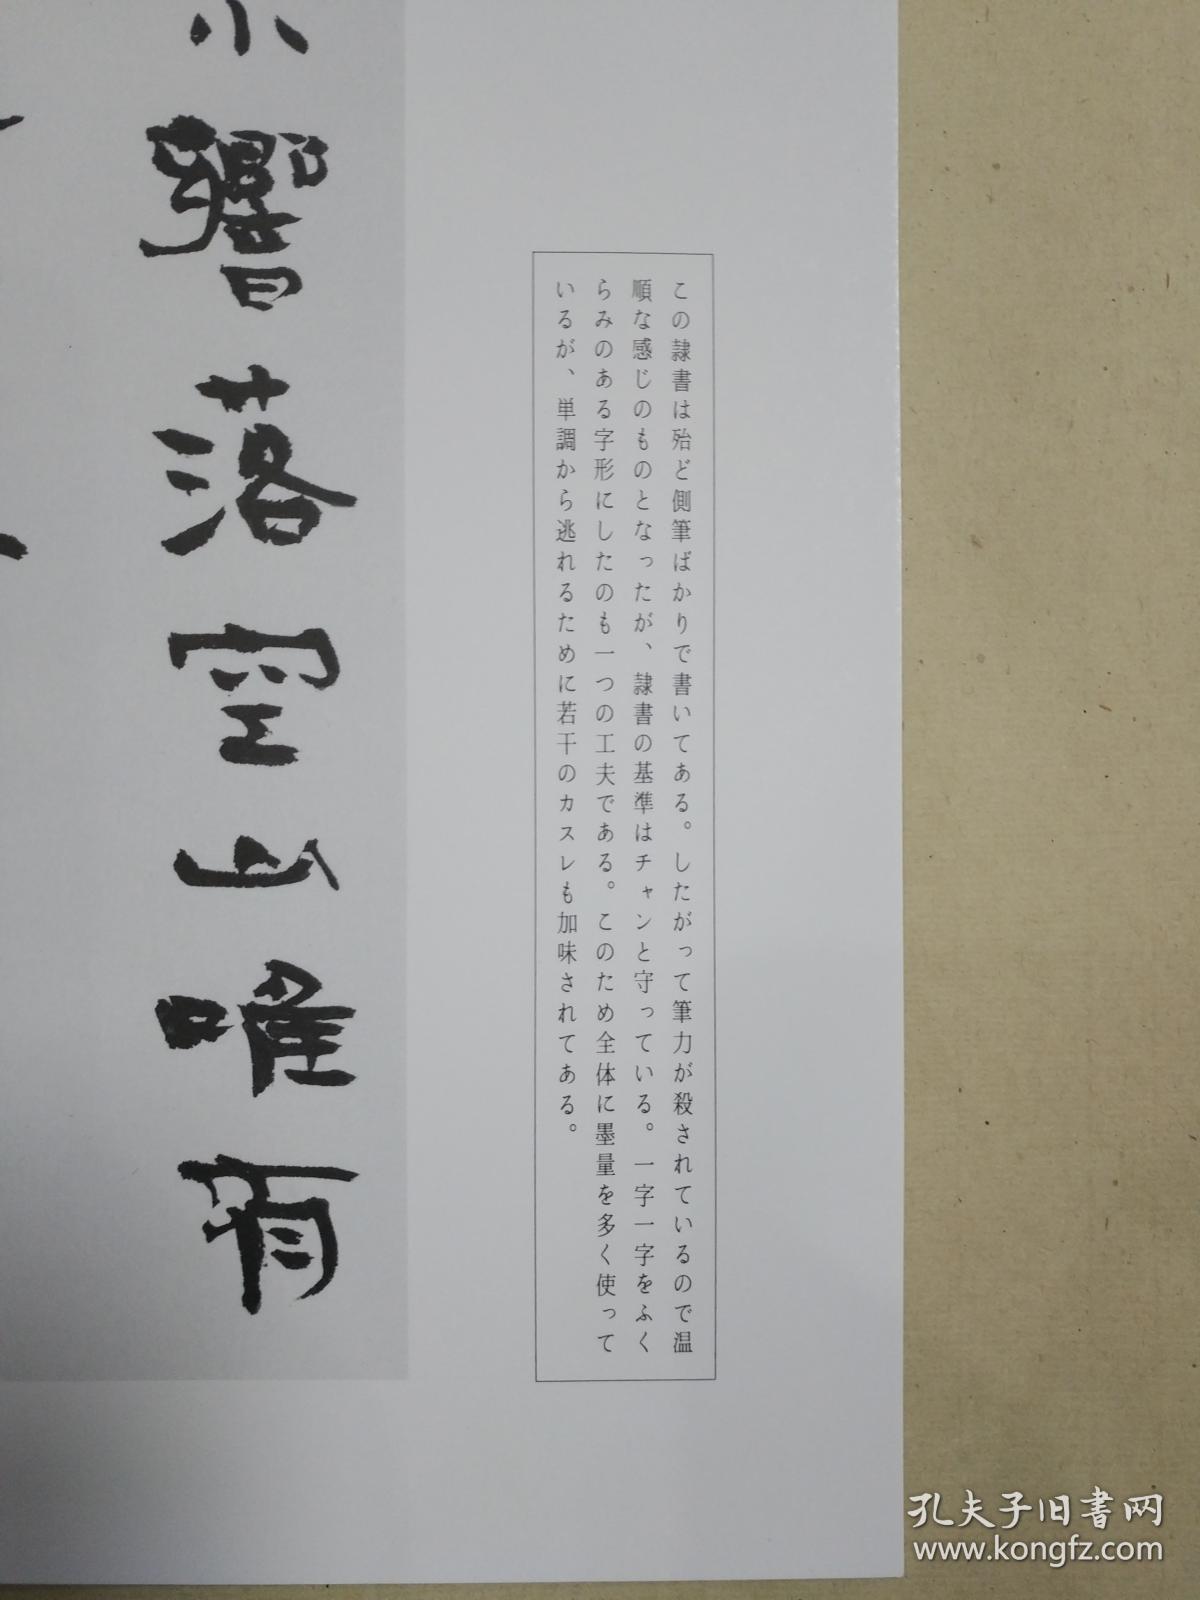 この隷書は殆ど側筆ばかりで書いてある。したがって筆力が殺されているので温
順な感じのものとなったが、隷書の基準はチャンと守っている。一字一字をふく
らみのある字形にしたのも一つの工夫である。このため全体に墨量を多く使って
いるが、単調から逃れるために若干のカスレも加味されてある。
響落空山唯有
孔夫子旧书网
www.kongfz.com